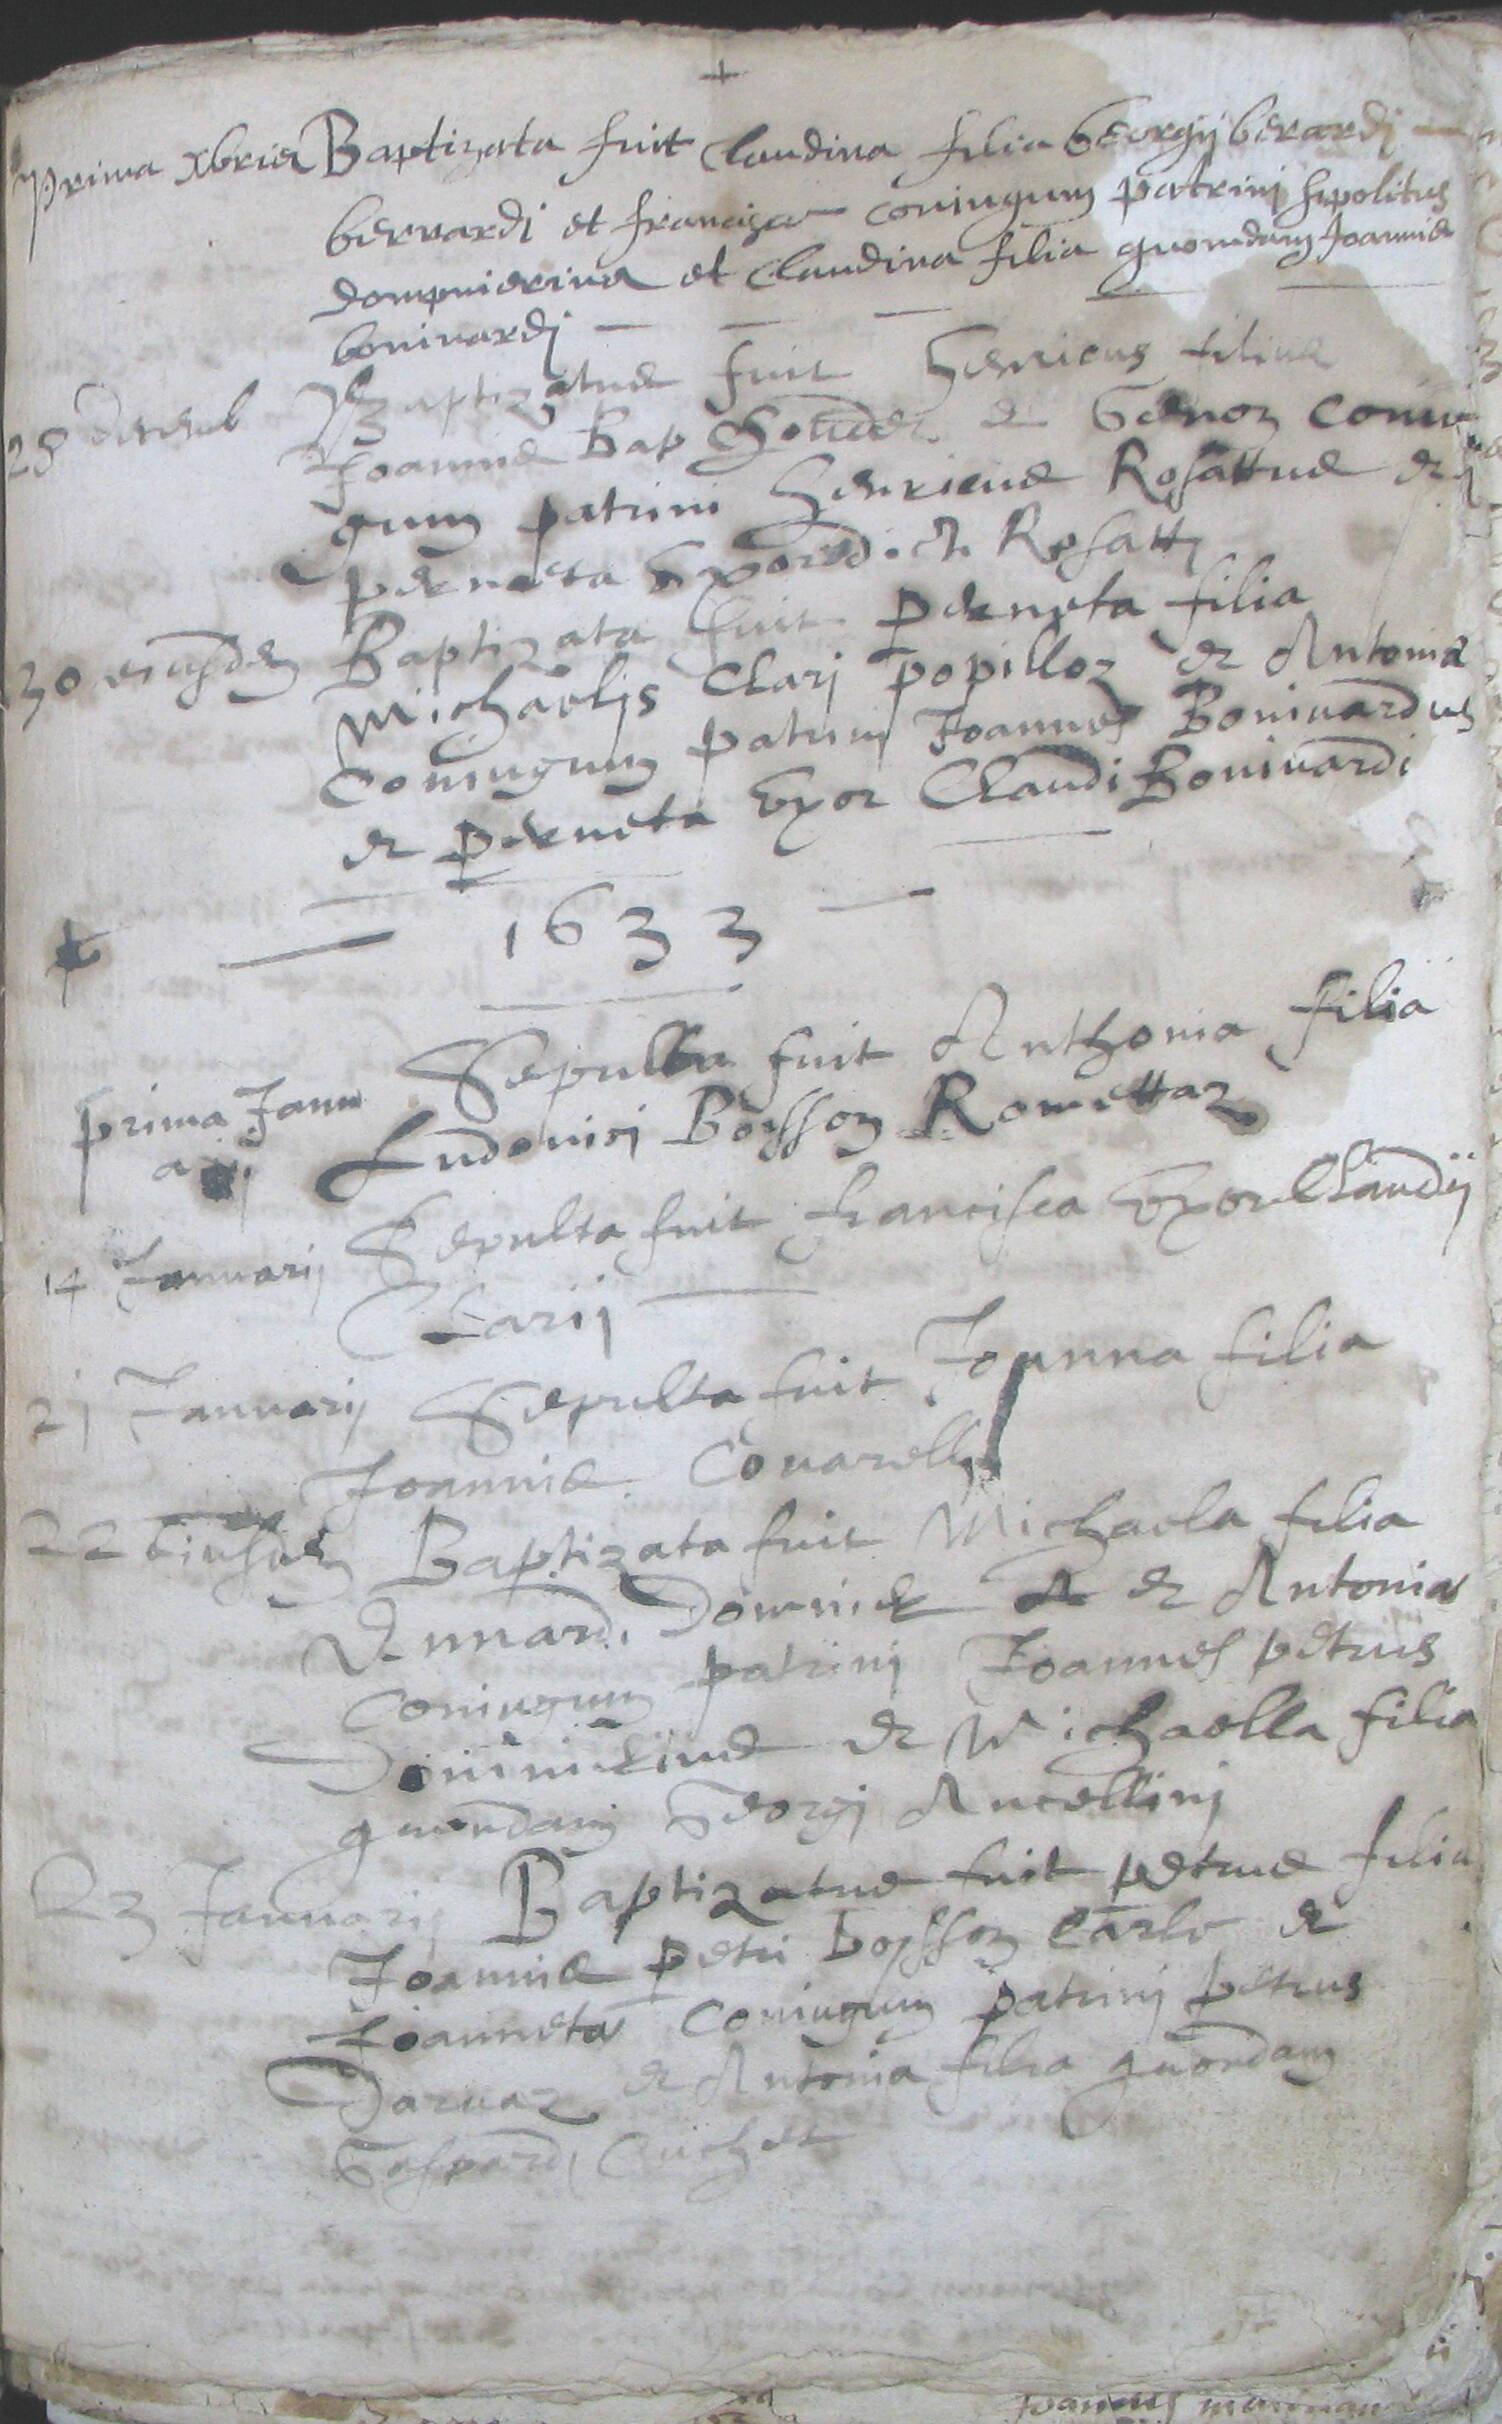 +
Prima Xbris Baptizata fuit Claudina filia Georgij berardj
bernardj et francisca coniugum patrinj hipolitus
dompnierinus et Claudina filia quondam Joannis
bonivardj
28 decemb Baptizatus fuit Henricus filius
Joannis Bap et coniu
gum patrini Henricus Rosattus et
perneta Uxor d. Rosattj
30 eiusdem Baptizata fuit perneta filia
Michaelis Clarj popilloz et Antonia
Coniugum patrinj Joannes Bonivardus
et perneta Uxor Claudi Bonivardi
1633
prima Janu Sepulta fuit Anthonia filia
arij Ludovicj Boysson Romettaz
14 Januarij Sepulta fuit francisca Uxor Claudij
Clarij
21 Januarij Sepulta fuit Joanna filia
Joannis Covarelli
22 Eiusdem Baptizata fuit Michaela filia
et Antonia
Coniugum patrinj Joannes petrus
et Michaella filia
quondam Georgj Ancellinj
23 Januarij Baptizatus fuit petrus filiu
Joannis petri boysson Carlo et
Joanneta Coniugum patrinj petrus
Darnaz et Antonia filia quondam
Gaspardi
Joannes